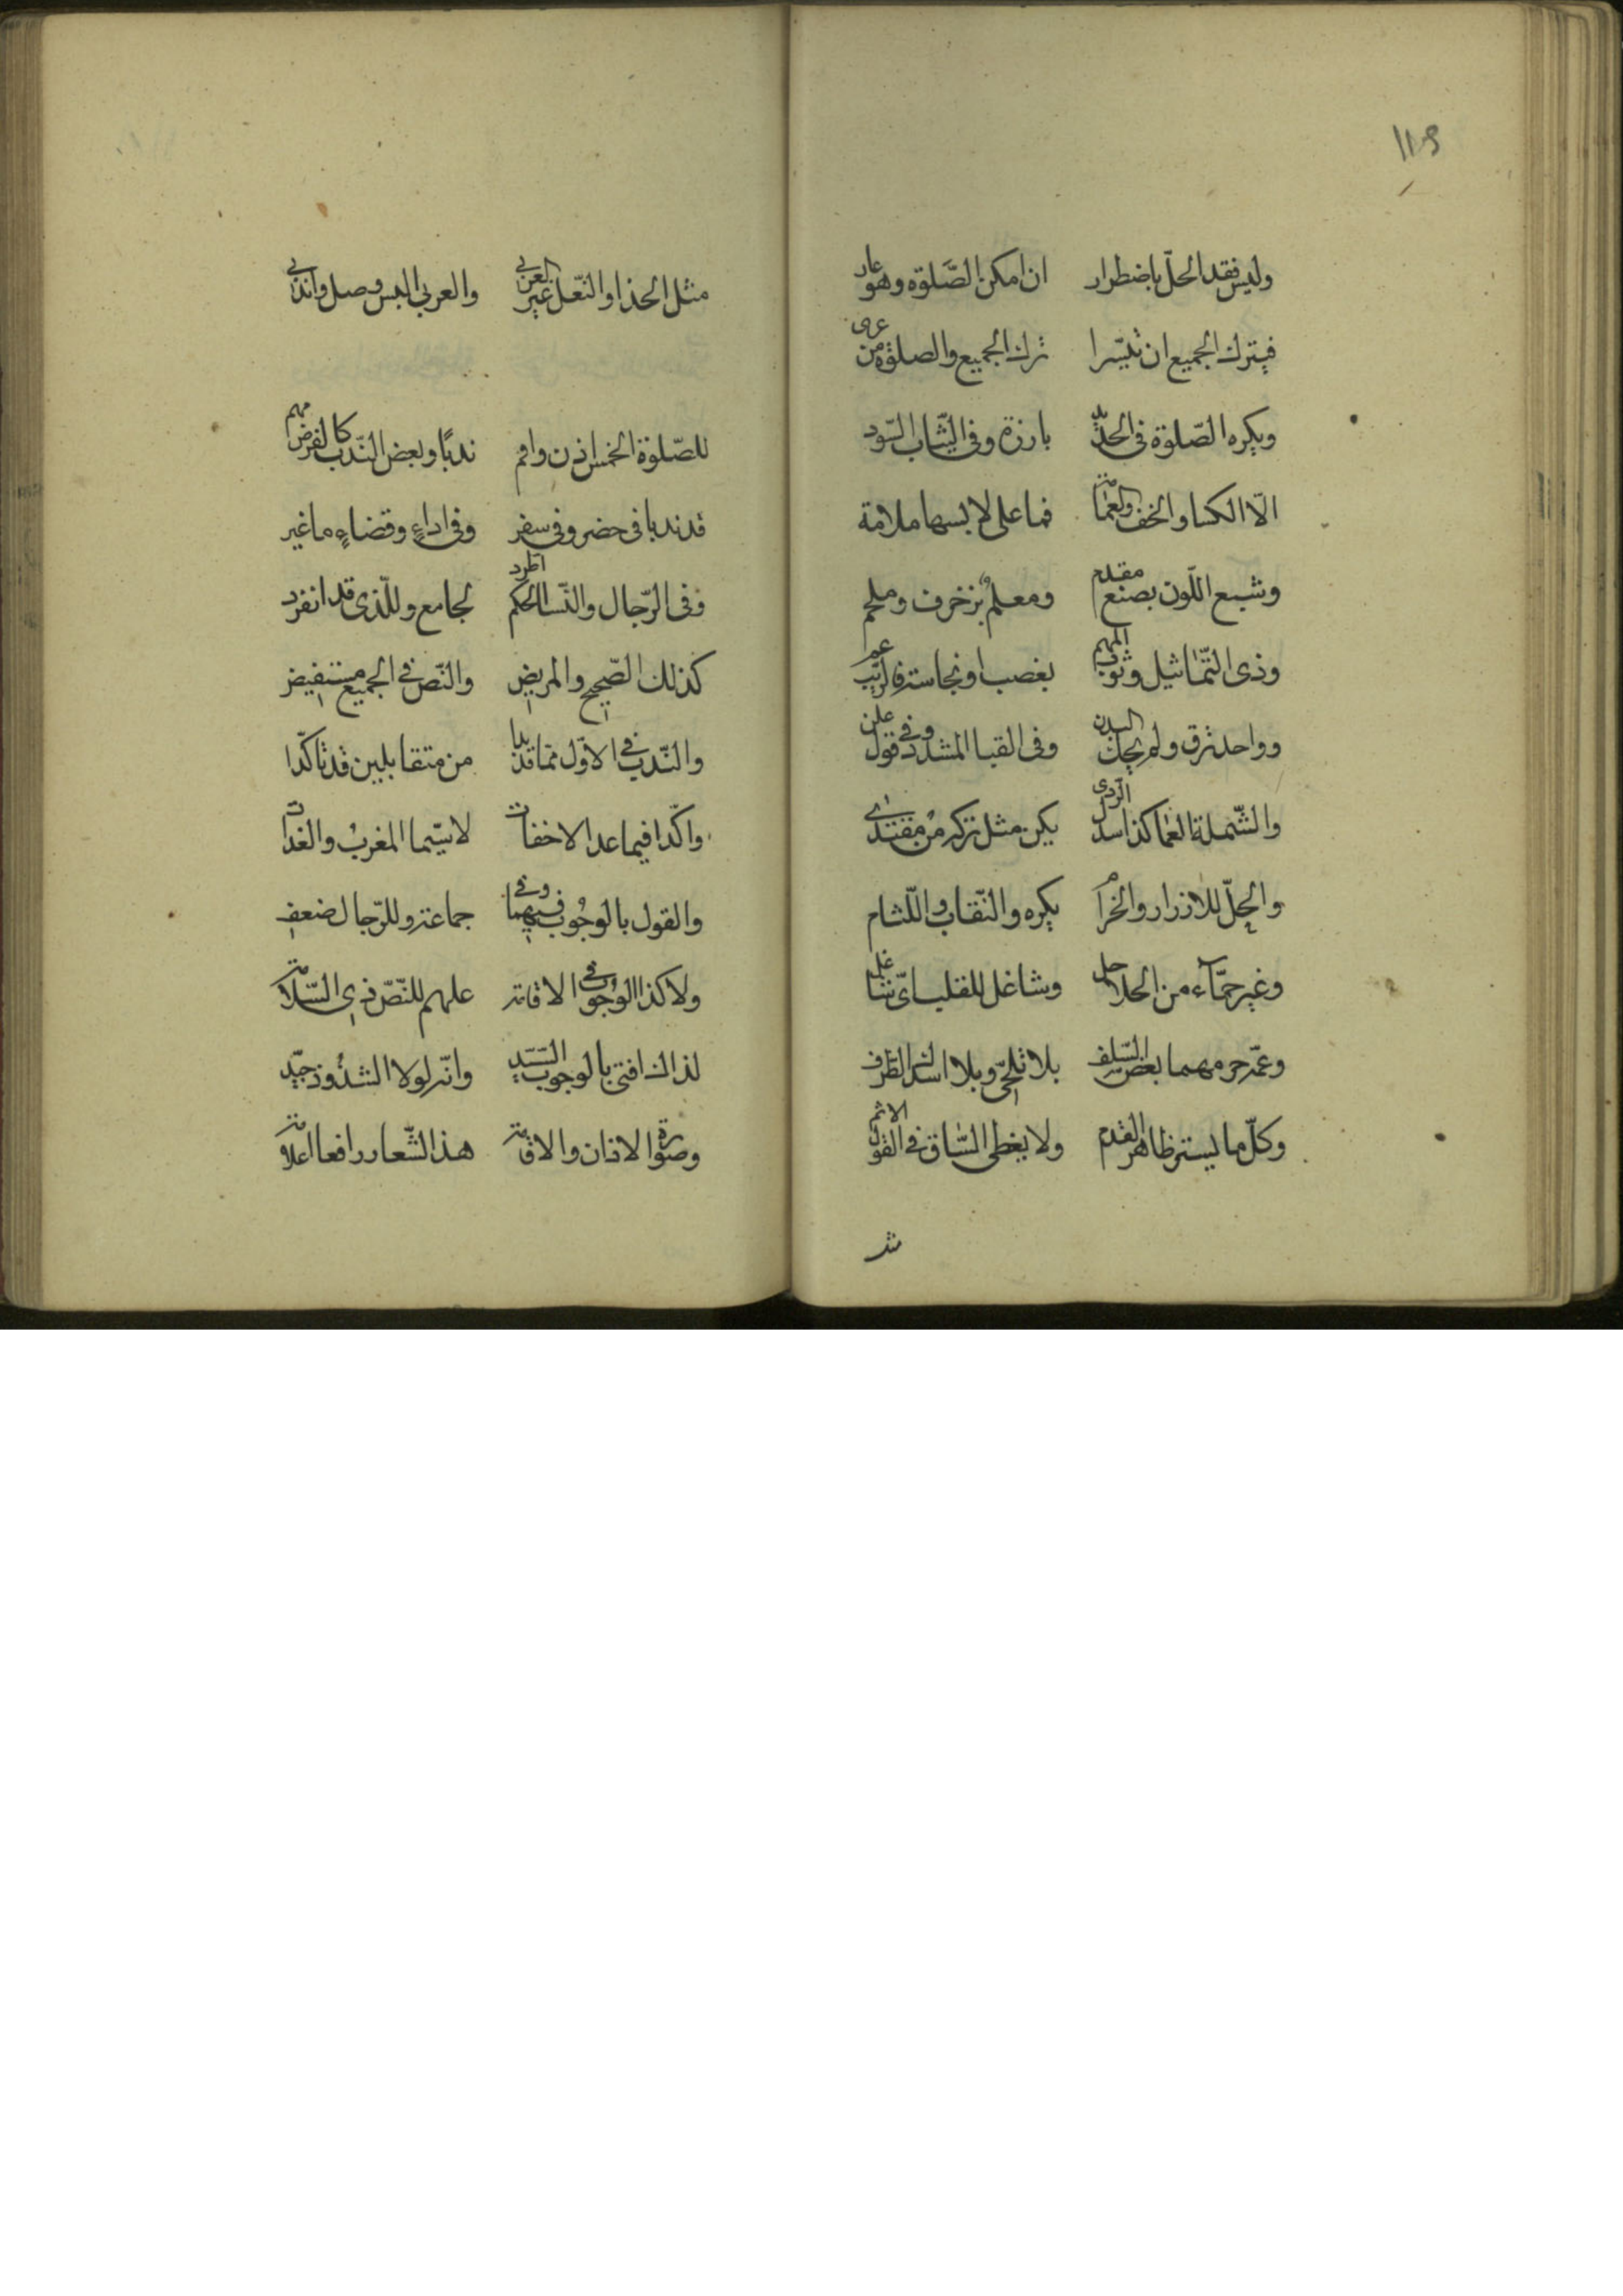 ١١٩
وليس فقد الحلّ باضطرار ان امكن الصّلوة وهو عار
فيترك الجميع ان تيسّرا ترك الجميع والصلوة من عرى
ويكره الصّلوة فى الجلد بارزة وفى الثّياب السّود
الّا الكسا والخف والعمامة فما على لابسها ملامة
وشبع اللّون بصنع مقدم ومعلم بزخرف وملحم
وذى التّماثيل وثوب المتهم بغصب او نجاسة فالريب عم
وواحد ترق ولم يحك البدن وفى القبا المشدود فى قول علن
والشّملة الغما كذا سدل الرّدى يكن مثل تركه من مقتدى
والحلّ للازرار والخرام يكره والنّقاب واللّثام
وغير حمّاء من الحلاحل وشاغل للقلب اىّ شاغل
وعمّة حرمها بعض السّلف بلا تلحّى وبلا اسدال طرف
وكلّ ما يستر ظاهر القدم ولا يغطى السّاق فى القول الاثم
مثل
مثل الحذا والنّعل غير العربى والعربى البس وصل واندب
للصّلوة الخمس اذن واقم ندبًا وبعض النّدب كالفرض مهم
قد ندبا فى حضر وفى سفر وفى اداءٍ وقضاءٍ ما غبر
وفى الرّجال والنّسا الحكم اطرد لجامع وللّذى قد انفرد
كذلك الصّحيح والمريض والنّص فى الجميع مستفيض
والنّدب فى الاوّل ممّا قد بدا من متقابلين قد تاكّدا
واكّدا فيما عدا الاخفات لا سيّما المغرب والغدات
والقول بالوجوب فيهما وفى جماعة وللرّجال ضعف
ولا كذا الوجوب فى الاقامة عليهم للنّصّ ذى السّلامة
لذاك افتى بالوجوب السّيّد وانّه لولا الشذوذ جيّد
وصورة الاذان والاقامة هذا الشّعار رافعا اعلامه